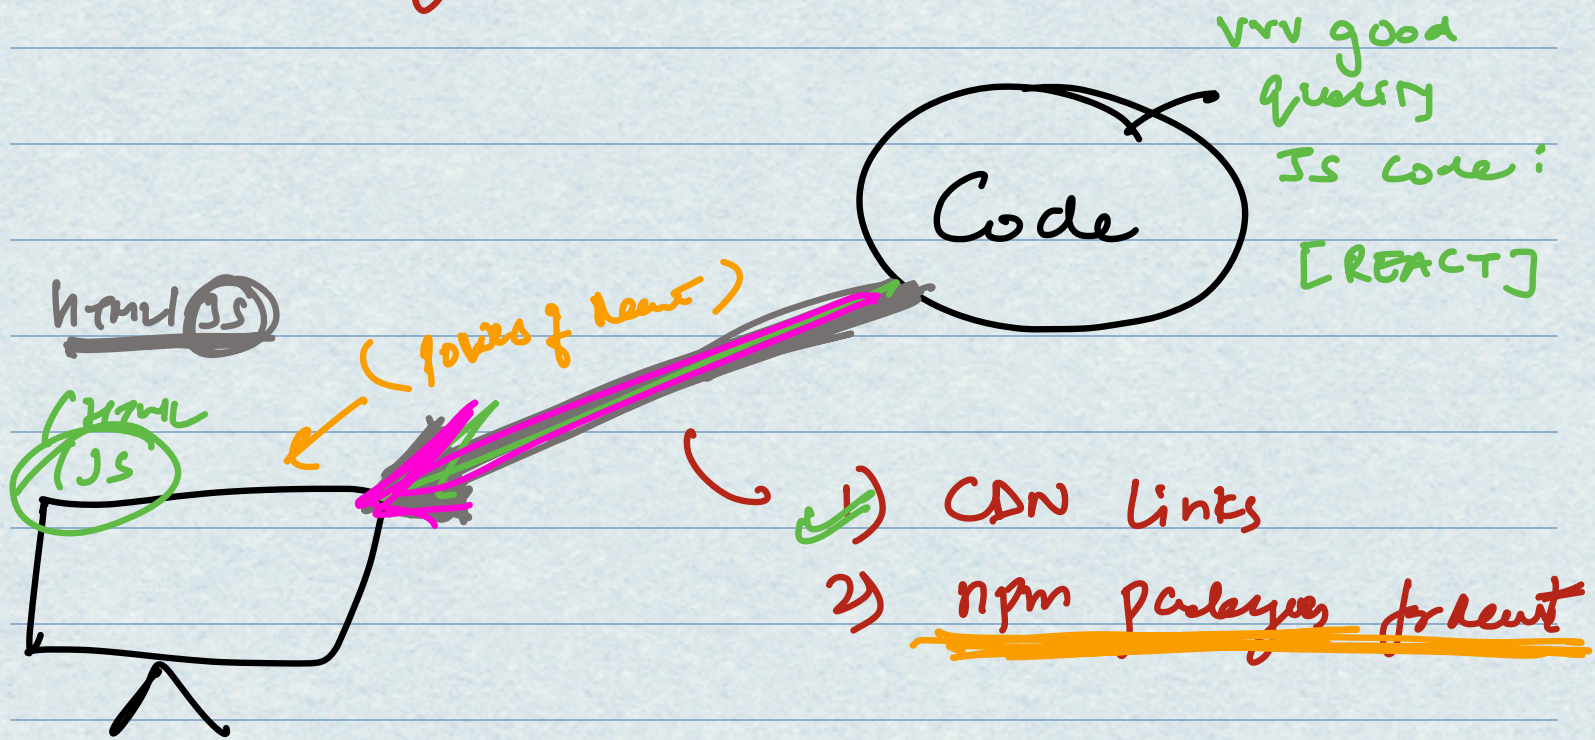 vvv good
quality
JS code:
[REACT]
Code
html/JS
(powers of React)
HTML
JS
1) CDN links
2) npm packages for React